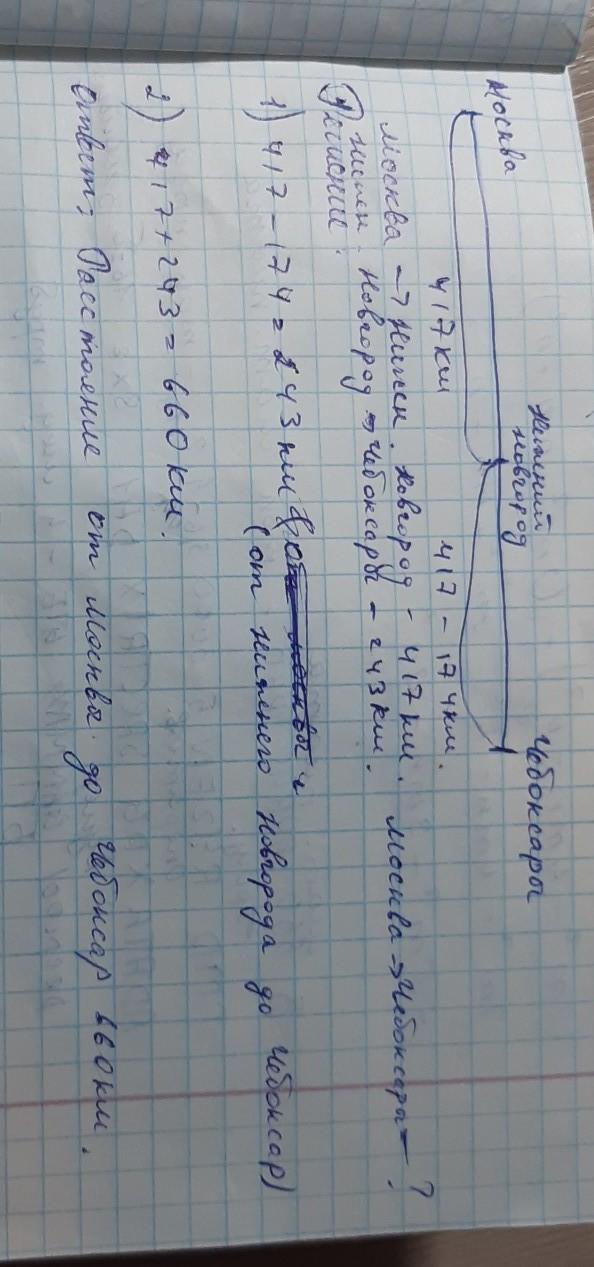 Москва
Нижний
Новгород
Чебоксары
417км
417 - 174км.
Москва → Нижн. Новгород - 417км. Москва → Чебоксары - ?
Нижн. Новгород → Чебоксары - 243км.
Решение:
1) 417 - 174 = 243км
(от Нижнего Новгорода до Чебоксар)
2) 417 + 243 = 660км.
Ответ: Расстояние от Москвы до Чебоксар 660км.